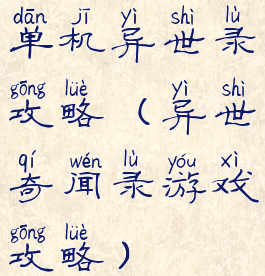 dān jī yì shì lù
单机异世录
gōng lüè yì shì
攻略（异世
qí wén lù yóu xì
奇闻录游戏
gōng lüè
攻略）